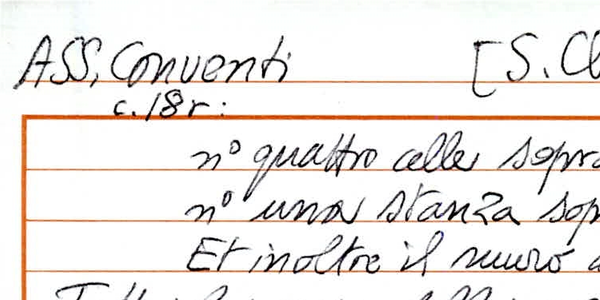 ASS, Conventi [S. Cl
c. 18r:
n° quattro celle sopra
n° una stanza sop
Et inoltre il muro